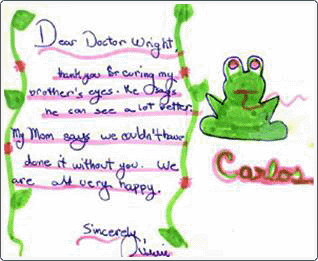 Dear Doctor Wright,
thank you for curing my
brother's eyes. He says
he can see a lot better.
My Mom says we couldn't have
done it without you. We
are all very happy.
Sincerely
Carlos